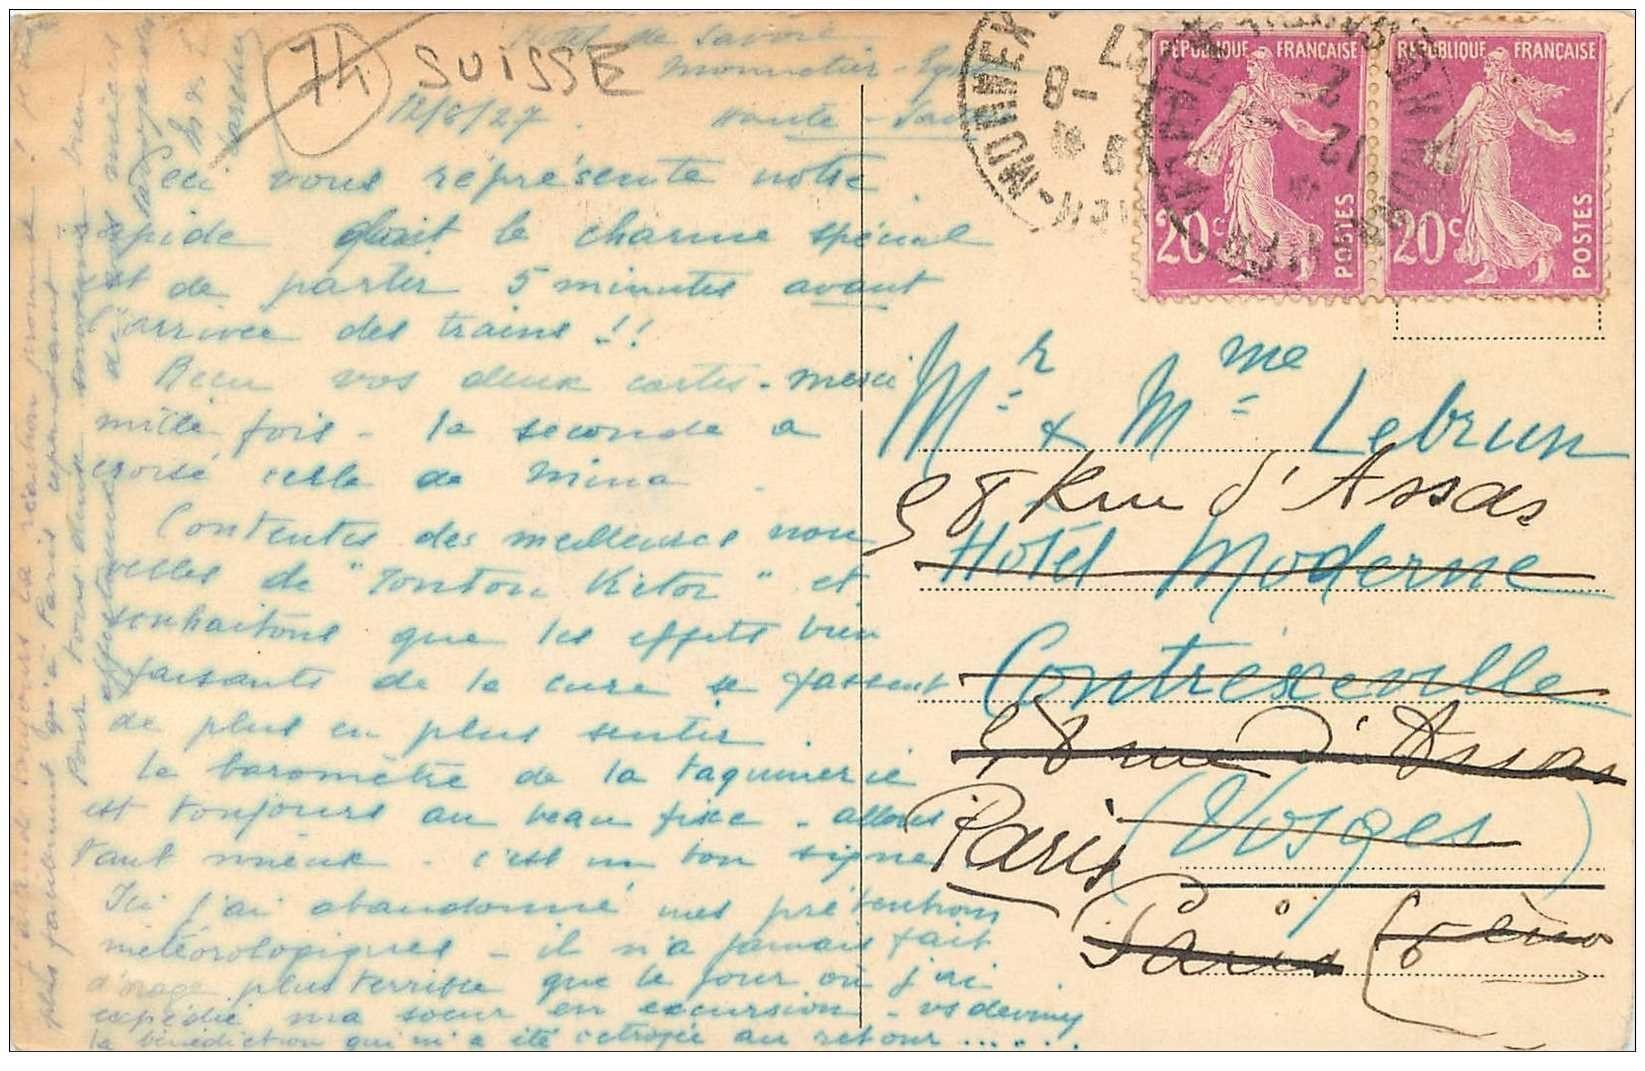 74 SUISSE
Hotel de Savoie
Monnetier-
12/8/27. Haute-Savoie
Ceci vous représente notre
rapide dont le charme spécial
est de partir 5 minutes avant
l'arrivée des trains!!
Reçu vos deux cartes - merci
mille fois - la seconde a
croisé celle de Mina.
Contentes des meilleures nou
velles de "Tonton Kitor" et
souhaitons que les effets bien
faisants de la cure se fassent
de plus en plus sentir.
Le baromètre de la taquinerie
est toujours au beau fixe - allons
tant mieux - c'est un bon signe
Ici j'ai abandonné mes prétentions
météorologiques - il n'a jamais fait
d'orage plus terrible que le jour où j'ai
expédié ma soeur en excursion - vs devinez
la bénédiction qui m'a été octroyée au retour......
toujours la réaction promise!
plus facilement qu'à Paris cependant
Pour vous deux souvenirs bien
affectueux
RÉPUBLIQUE FRANÇAISE
20c POSTES
RÉPUBLIQUE FRANÇAISE
20c POSTES
MORNEX
Mr & Mme Lebrun
58 Rue d'Assas
Hotel Moderne
Contrexeville
58 rue d'Assas
Paris (Vosges)
Paris (6ème